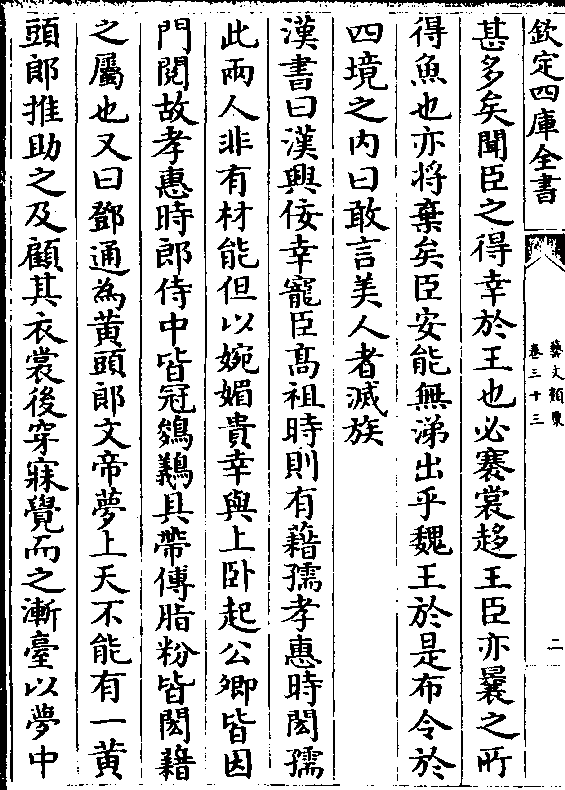 欽定四庫全書
藝文類聚
卷三十三
二
甚多矣聞臣之得幸於王也必褰裳趍王臣亦曩之所
得魚也亦將棄矣臣安能無涕出乎魏王於是布令於
四境之内曰敢言美人者滅族
漢書曰漢興佞幸寵臣髙祖時則有藉孺孝惠時閎孺
此兩人非有材能但以婉媚貴幸與上卧起公卿皆因
門閲故孝惠時郎侍中皆冠鵕鸃具帶傅脂粉皆閎藉
之屬也又曰鄧通為黄頭郎文帝夢上天不能有一黄
頭郎推助之及顧其衣裳後穿寐覺而之漸臺以夢中